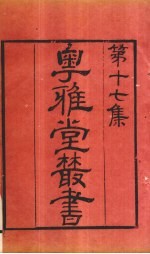 第十七集
粵雅堂叢書